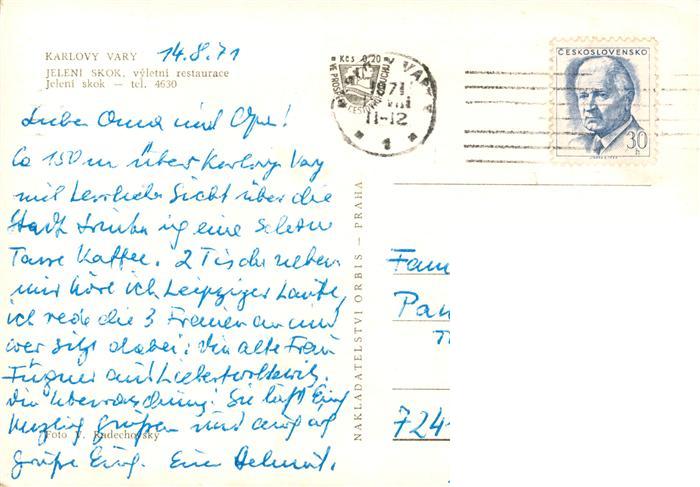 KARLOVY VARY 14.8.71
JELENÍ SKOK, výletní restaurace
Jelení skok – tel. 4630
Liebe Oma und Opa!
Ca 150 m über Karlovy Vary
mit herrlicher Sicht über die
Stadt trinke ich eine schöne
Tasse Kaffee. 2 Tische neben
mir höre ich Leipziger Laute,
ich rede die 3 Frauen an und
wer sitzt dabei: die alte Frau
Fügner aus Liebertwolkwitz.
Die Überraschung! Sie läßt Euch
herzlich grüßen und auch ich
grüße Euch. Euer Helmut.
Foto V. Radechovský
NAKLADATELSTVÍ ORBIS – PRAHA
Kčs 0,20
VARY
71
VIII
11-12
1
ČESKOSLOVENSKO
30
h
Fam
Pan
724